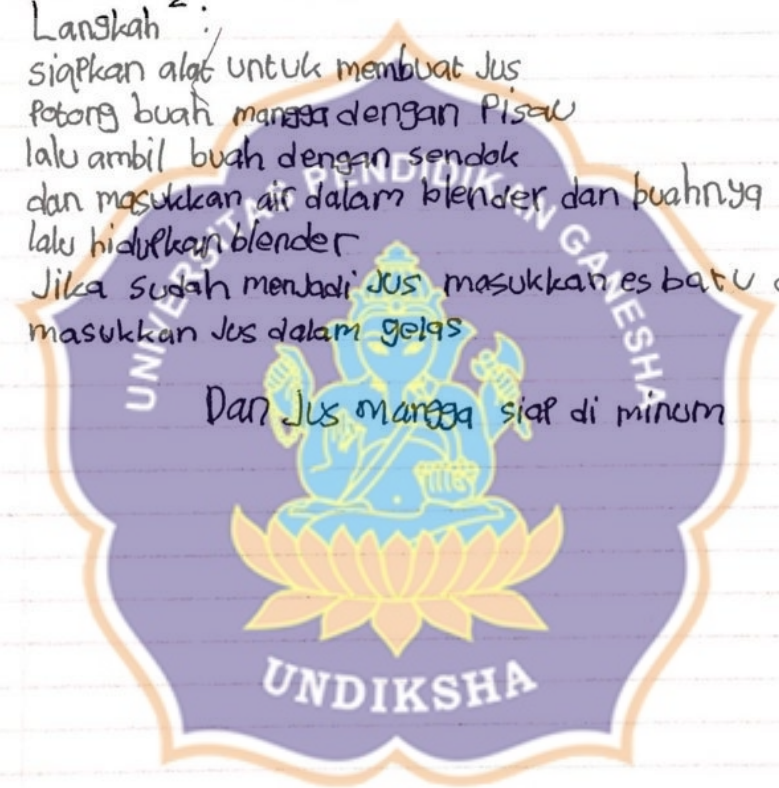 Langkah 2 :
siapkan alat untuk membuat Jus
Potong buah mangga dengan Pisau
lalu ambil buah dengan sendok
dan masukkan air dalam blender dan buahnya
lalu hidupkan blender
Jika sudah menJadi Jus masukkan es batu
masukkan Jus dalam gelas
Dan Jus mangga siap di minum
UNIVERSITAS PENDIDIKAN GANESHA
UNDIKSHA